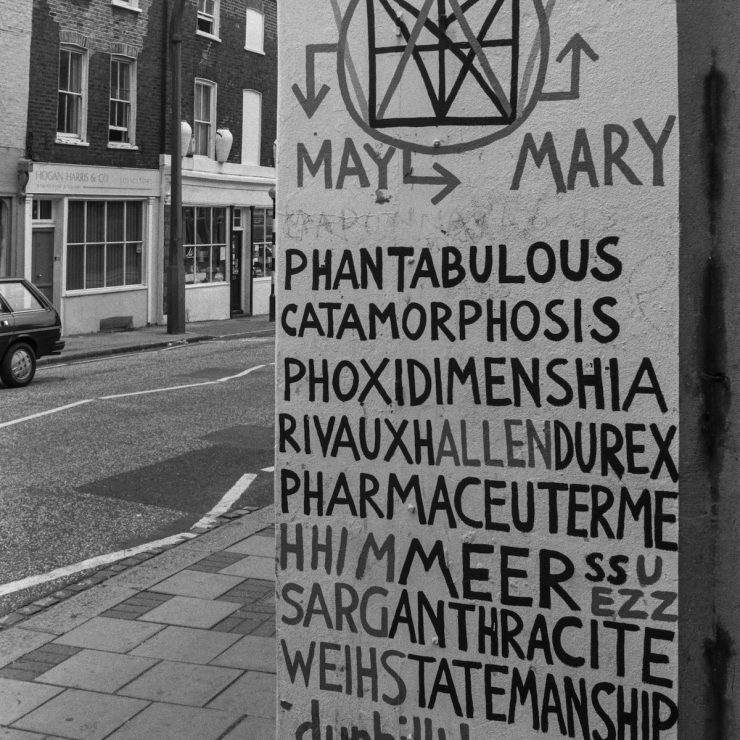 HOGAN HARRIS & CO
MAY MARY
PHANTABULOUS
CATAMORPHOSIS
PHOXIDIMENSHIA
RIVAUXHALLENDUREX
PHARMACEUTERME
HHIMMEER SSU
EZZ
SARGANTHRACITE
WEIHSTATEMANSHIP